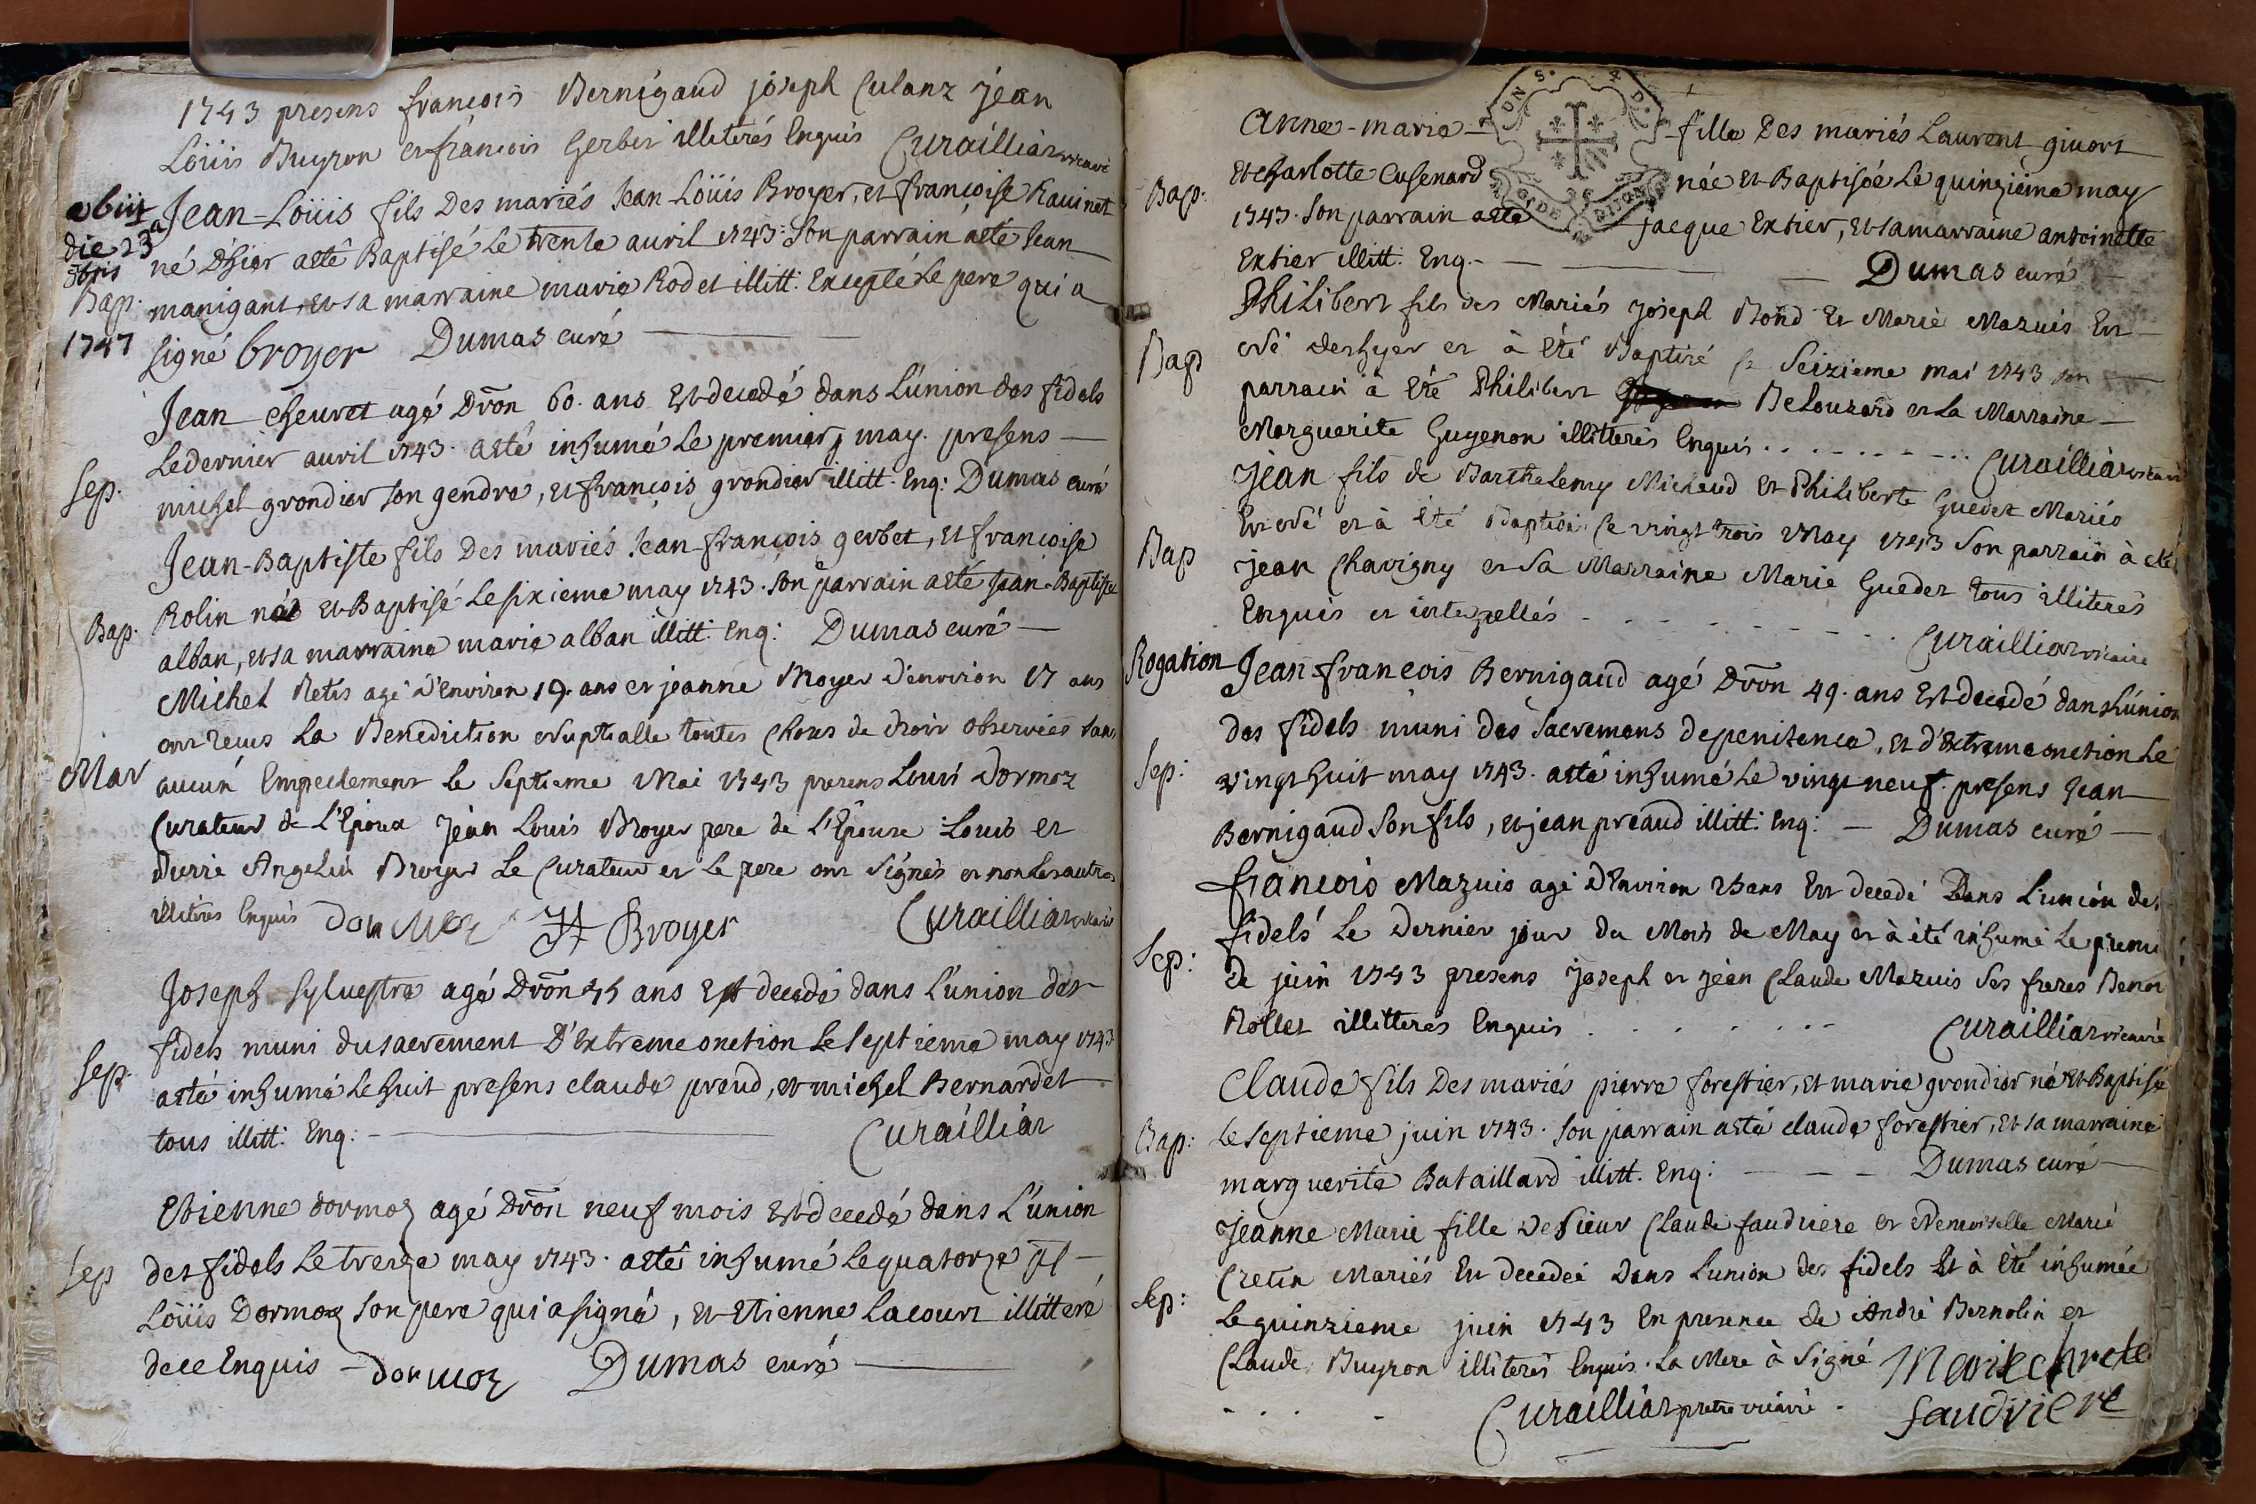 1743 presens françois Bernigaud joseph Culanz jéan
Loüis Buyron et françois Gerbet illiterés Enquis Curailliar vicaire
obiit die 23 8bris 1747
Bap. Jean-Loüis fils Des mariés Jean-Loüis Broyer, et françoise Rauinet
né D'hier astê Baptisé Le trente auril 1743: Son parrain astê Jean
manigant, et sa marraine marie Rodet illitt: Excepté Le pere qui a
signé broyer Dumas curé
Jean cheuret agé Dron 60. ans Est decedé dans L'union des fidels
Sep. Le dernier auril 1743. astê inhumé Le premier may. presens
michel grondier son gendre, et françois grondier illitt. Enq: Dumas curé
Jean-Baptiste fils Des mariés Jean-françois gerbet, et françoise
Bap. Rolin né et Baptisé Le sixieme may 1743. son parrain asté Jean-Baptiste
alban, et sa marraine marie alban illitt: Enq: Dumas curé
Michel Retis agé d'Environ 19. ans et jeanne Broyer d'environ 17 ans
ont reçus La Benediction Nuptialle toutes choses de droit observées sans
Mar aucun Empechement Le Septieme Mai 1743 presens Louis Dormoz
Curateur de L'Epoux Jéan Louis Broyer pere de L'Epouse Louis et
Pierre Angelin Broyer Le Curateur et Le pere ont signés et non Les autres
illiterés Enquis dormoz Broyer Curailliar vicaire
Joseph Syluestre agé Dron ans Est decedé dans L'union des
Sep. fidels muni du sacrement D'Extreme onction Le septieme may 1743
astê inhumé Le huit presens claude preud, et michel Bernardet
tous illitt: Enq: Curailliar
Etienne dormoz agé Dron neuf mois Est decedé dans L'union
Sep des fidels Le treize may 1743. astê inhumé Le quatorze
Loüis Dormoz son pere qui a signé, et Etienne Lacour illitteré
de ce Enquis dormoz Dumas curé
Anne-marie fille Des mariés Laurent giuort
Bap. Et charlotte Cusenard née et Baptisée Le quinzieme may
1743. Son parrain asté Jacque Extier, Et sa marraine antoinette
Extier illitt. Enq. Dumas curé
Philibert fils des Mariés joseph Rond et Marie Mazuis Est
Bap né deshyer et à été Baptisé le Seizieme mai 1743 son
parrain à été Philibert DeLouzard et La Marraine
Marguerite Guyenon illitterés Enquis Curailliar vicaire
Jéan fils de Barthelemy Michaud et Philiberte Guedez Mariés
Bap Est né et à été Baptisé Le vingt trois May 1743 Son parrain à été
jean Chavigny et Sa Marraine Marie Guedez tous illiterés
Enquis et interpellés Curailliar vicaire
Rogation Jean-françois Bernigaud agé Dron 49. ans Est decedé dans L'union
des fidels muni des Sacremens de penitence, et d'Extreme onction Le
Sep: vingt huit may 1743. astê inhumé Le vingt neuf. presens Jean
Bernigaud son fils, et jean preaud illitt: Enq: Dumas curé
françois Mazuis agé d'Environ ans Est decedé Dans L'union des
Sep: fidels Le Dernier jour du Mois de May et à été inhumé Le premier
de juin 1743 presens joseph et jéan Claude Mazuis Ses freres Benoit
Rollet illitterés Enquis Curailliar vicaire
Claude fils Des mariés pierre forestier, et marie grondier né et Baptisé
Bap: Le septieme juin 1743. son parrain asté claude forestier, et sa marraine
marguerite Bataillard illitt. Enq: Dumas curé
Jeanne Marie fille de Sieur Claude faudriere et Demoiselle Marie
Cretin Mariés Est decedeé dans L'union des fidels et à été inhumée
Sep: Le quinzieme juin 1743 En presence de André Bernolin et
Claude Buyron illiterés Enquis. La Mere à Signé Marie chrete
Curailliar pretre vicaire faudriere